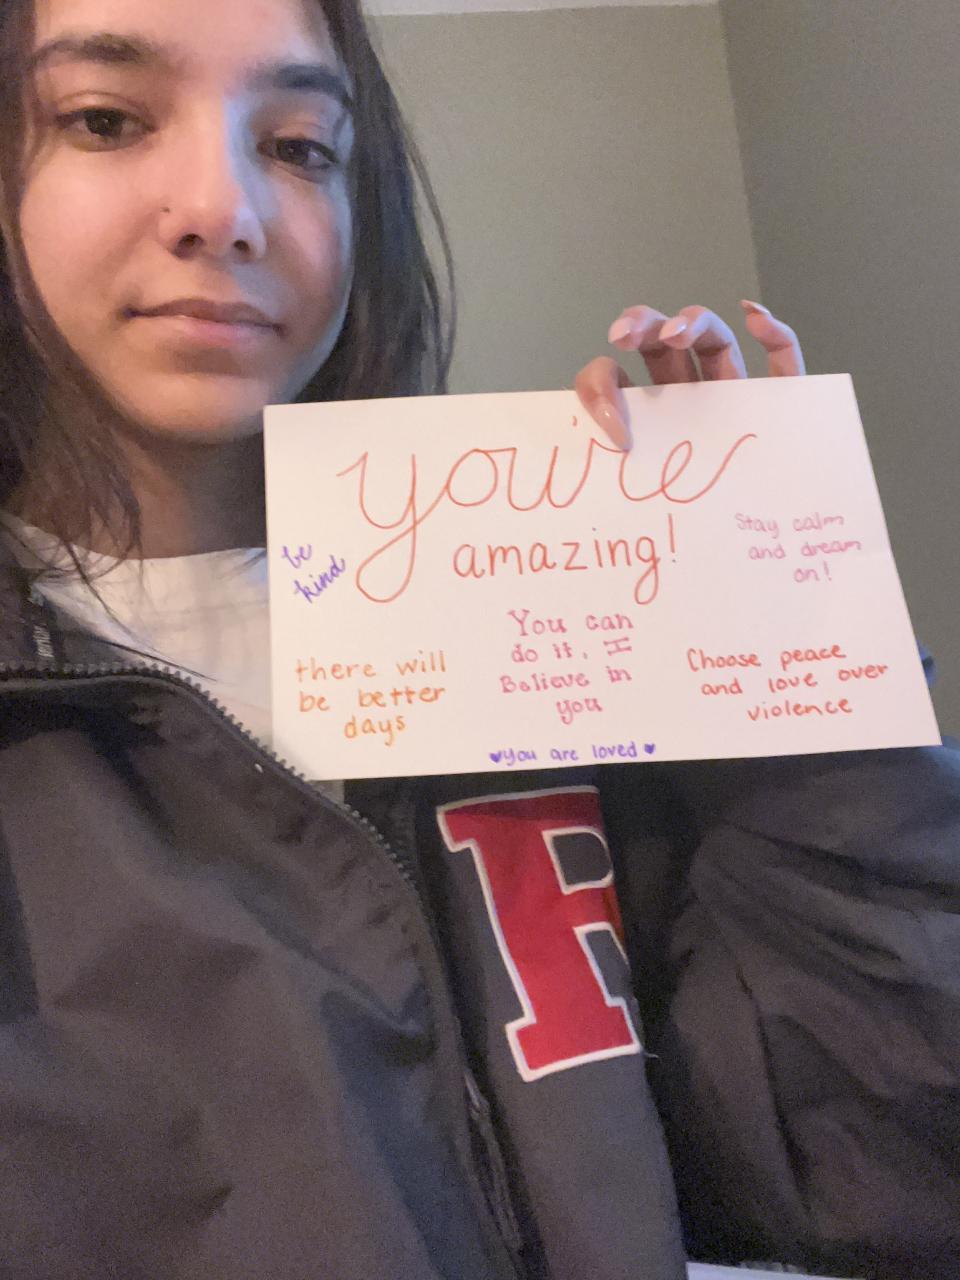 you're
amazing!
be
kind
Stay calm
and dream
on!
there will
be better
days
You can
do it, I
Believe in
you
Choose peace
and love over
violence
♥you are loved♥
R